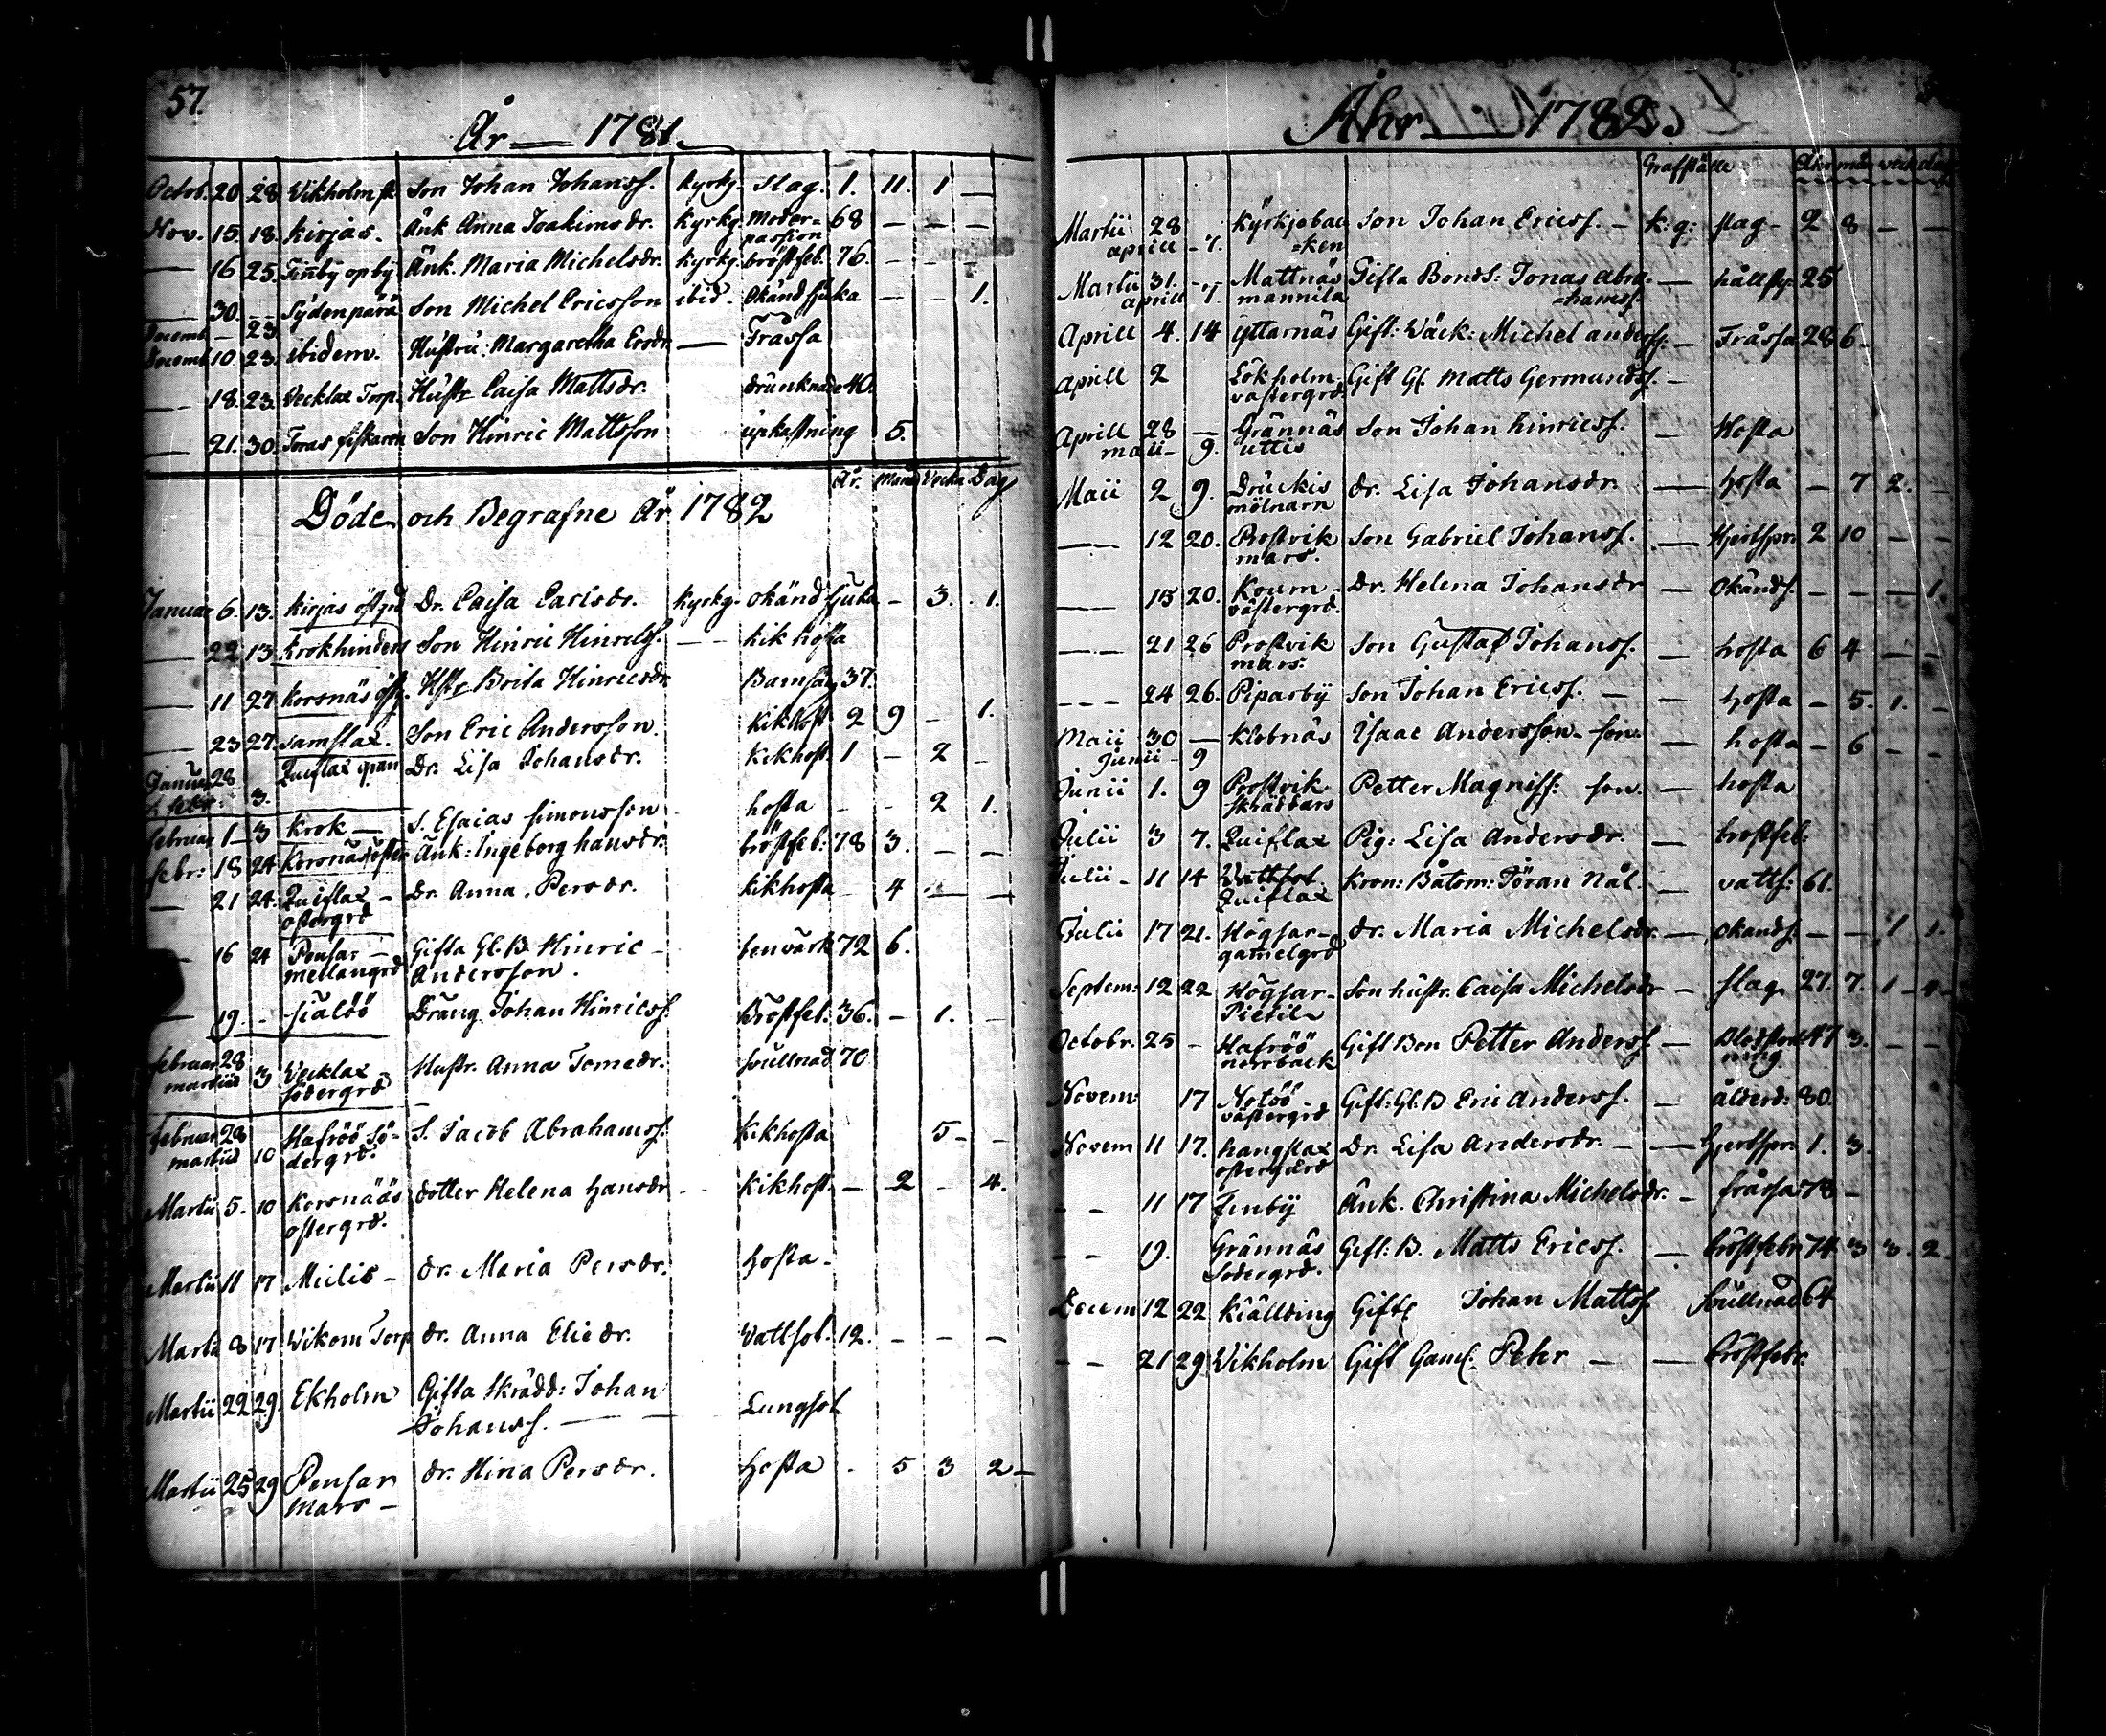 57.
År — 1781.
Octob. 20 28 Wikholm Son Johan Johanss. kyrkg. slag. 1. 11. 1 —
Nov. 15. 18. kirjas. Änk Anna Joakimsdr. kyrkg. Moder= 68 — — —
passion
— 16 25. Finby opby Änk. Maria Michelsdr. kyrkg. bröstfeb. 76. — — —
— 30. — Sydenpärä Son Michel Ericsson ibid. okänd sjuka — — 1.
Decemb — 23
Decemb 10 23. ibidem. Hustru: Margaretha Ersdr — Frassa
— 18. 23. Vecklax Torp. Hustr Caisa Mattsdr. drunknade 40.
— 21. 30. Toras fiskaren Son Hinric Mattsson upkastning 5.
År. Månd Vecka Dag
Döde och Begrafne År 1782
Januar 6. 13. kirjas östgrd Dr. Caisa Carlsdr. kyrkg. okänd sjuka — 3. 1.
— 22 13. Krokhinders Son Hinric Hinricss. — kikhosta
— 11 27 Korsnäs östg. Hstr Brita Hinricsdr Barnsäng 37.
— 23 27. samslax. Son Eric Andersson. kikhost 2 9 — 1.
Januar 28 Quiflax grän Dr. Lisa Johansdr. kikhost. 1 — 2 —
f. febr: 3.
februar 1 — 3 Krok — S. Esaias simonsson hosta — — 2 1.
febr: 18 24 Korsnäs öster Änk: Ingeborg hansdr. bröstfeb: 78 3. — —
— 21 24. Quiflax — Dr. Anna Persdr. kikhosta — 4 — —
östergrd
— 16 24 Pensar — Gifta Gl. B Hinric — benvärk 72 6.
mellangrd Andersson.
— 19. — sialöö Dräng Johan Hinricss. Bröstfeb. 36. — 1. —
februar 28 Vecklax Hustr. Anna Tomedr. svullnad 70
martiid 3 södergrd —
februar 28 Hafröö Sö- S. Jacob Abrahamss. kikhosta 5 — —
martiid 10 dergrd.
Martii 5. 10 Korsnääs dotter Helena Hansdr — kikhost. — 2 — 4.
östergrd.
Martii 11 17 Mielis — dr. Maria Persdr. hosta —
Martii 8 17 Wikom Torp dr. Anna Eliedr. Vattsot. 12. — — —
Martii 22 29. Ekholm Gifta skrädd: Johan Lungsot
Johanss. —
Martii 25 29 Pensar dr. Hina Persdr. hosta — 5 3 2 —
mars —
Åhr — 1782.
Grafställe Åhr mån veck dag
Martii 28 kyrkjobac Son Johan Ericss. — k: g: slag — 2 8 — —
aprill — 7. =ken
Martii 31. — Mattnäs Gifta Bonds: Jonas Abra- — hållsty: 25
aprill 7. mannila =hamss.
Aprill 4. 14 yttarnäs Gift: Wäck: Michel anderss. — Fråssa 28 6 —
Aprill 2 Lökholm Gift Gl. Matts Germundss. —
västergrd
Aprill 28 — Grännäs Son Johan hinricss. — Hosta
maii — 9. uttis
Maii 2 9. Drückis dr. Lisa Johansdr. — hosta — 7 2. —
mölnarn
— 12 20. Prostvik Son Gabriel Johanss. — Hjertspr. 2 10 — —
mars.
— 15 20. Koum — Dr. Helena Johansdr — Okänds. — — — 1.
västergrd.
— 21 26 Prostvik Son Gustaf Johanss. — hosta 6 4 — —
mars:
— 24 26. Piparby Son Johan Ericss. — — hosta — 5. 1. —
Maii 30 — klobnäs Isaac Andersson — son — hosta — 6 — —
Junii — 9
Junii 1. 9 Prostvik Petter Magniss: son. — hosta
skräddars
Julii 3 7. Quiflax Pig: Lisa Andersdr. — bröstfeb:
Julii — 11 14 Vattsot Kron: Båtsm: Jöran Nål. — vatts: 61.
Quiflax
Julii 17 21. Högsar — dr. Maria Michelsdr. — Okänds: — — 1 1.
gamelgrd
Septem: 12 22 Högsar — Son hustr. Caisa Michelsdr — slag 27. 7. 1 — 4 —
Pietil
Octobr. 25 — Hafröö Gift Bon Petter Anderss — Blodstört 47 3. — —
norrback ning
Novem 17 Nötöö Gift: Gl. B Eric Anderss. — ålderd: 80.
västergrd
Novem 11 17. hangslax Dr. Lisa Andersdr. — — Hjertspr. 1. 3.
östergård
— — 11 17 Finby Änk. Christina Michelsdr. — fråssa 78 —
— — 19. Grännäs Gift: B. Matts Ericss. — bröstfebr 74. 3 3. 2.
Södergrd.
Decem 12 22 Kiällding Gift Johan Mattss. Svullnad 64
— — 21 29 Wikholm Gift Gaml. Pehr — — bröstfebr.